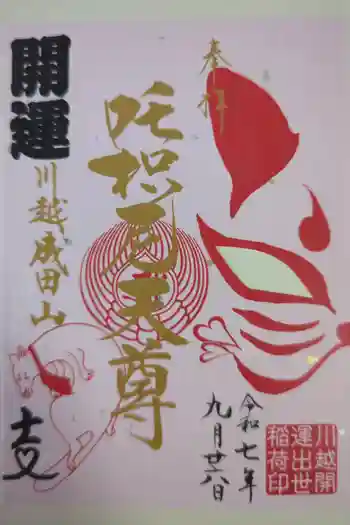 奉拝
開運
川越成田山
吒枳尼天尊
令和七年
九月廿六日
川越開
運出世
稲荷印